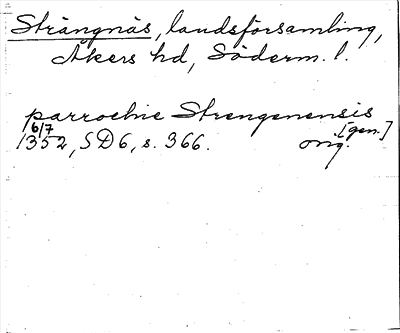 Strängnäs, landsförsamling,
Åkers hd, Söderm. l.
parrochie Strengenensis
[gen.]
6/7
1352, SD6, s. 366. orig.